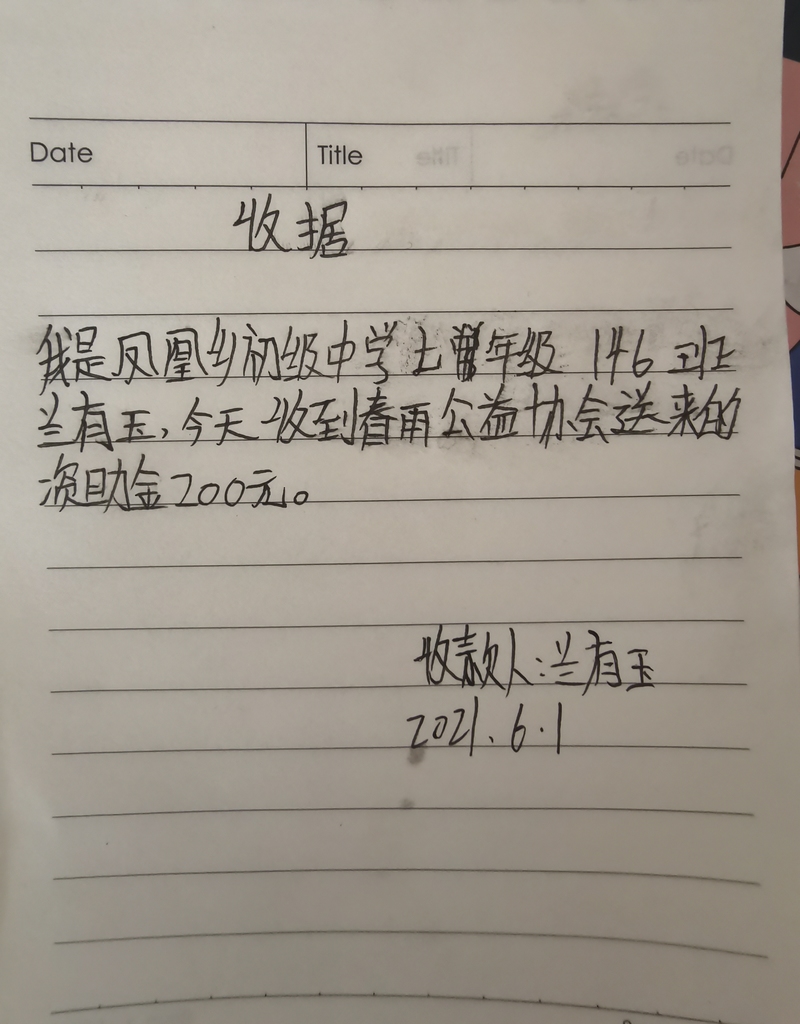 Date Title
收据
我是凤凰乡初级中学七年级 146班
兰有玉,今天收到春雨公益协会送来的
资助金200元。
收款人:兰有玉
2021.6.1